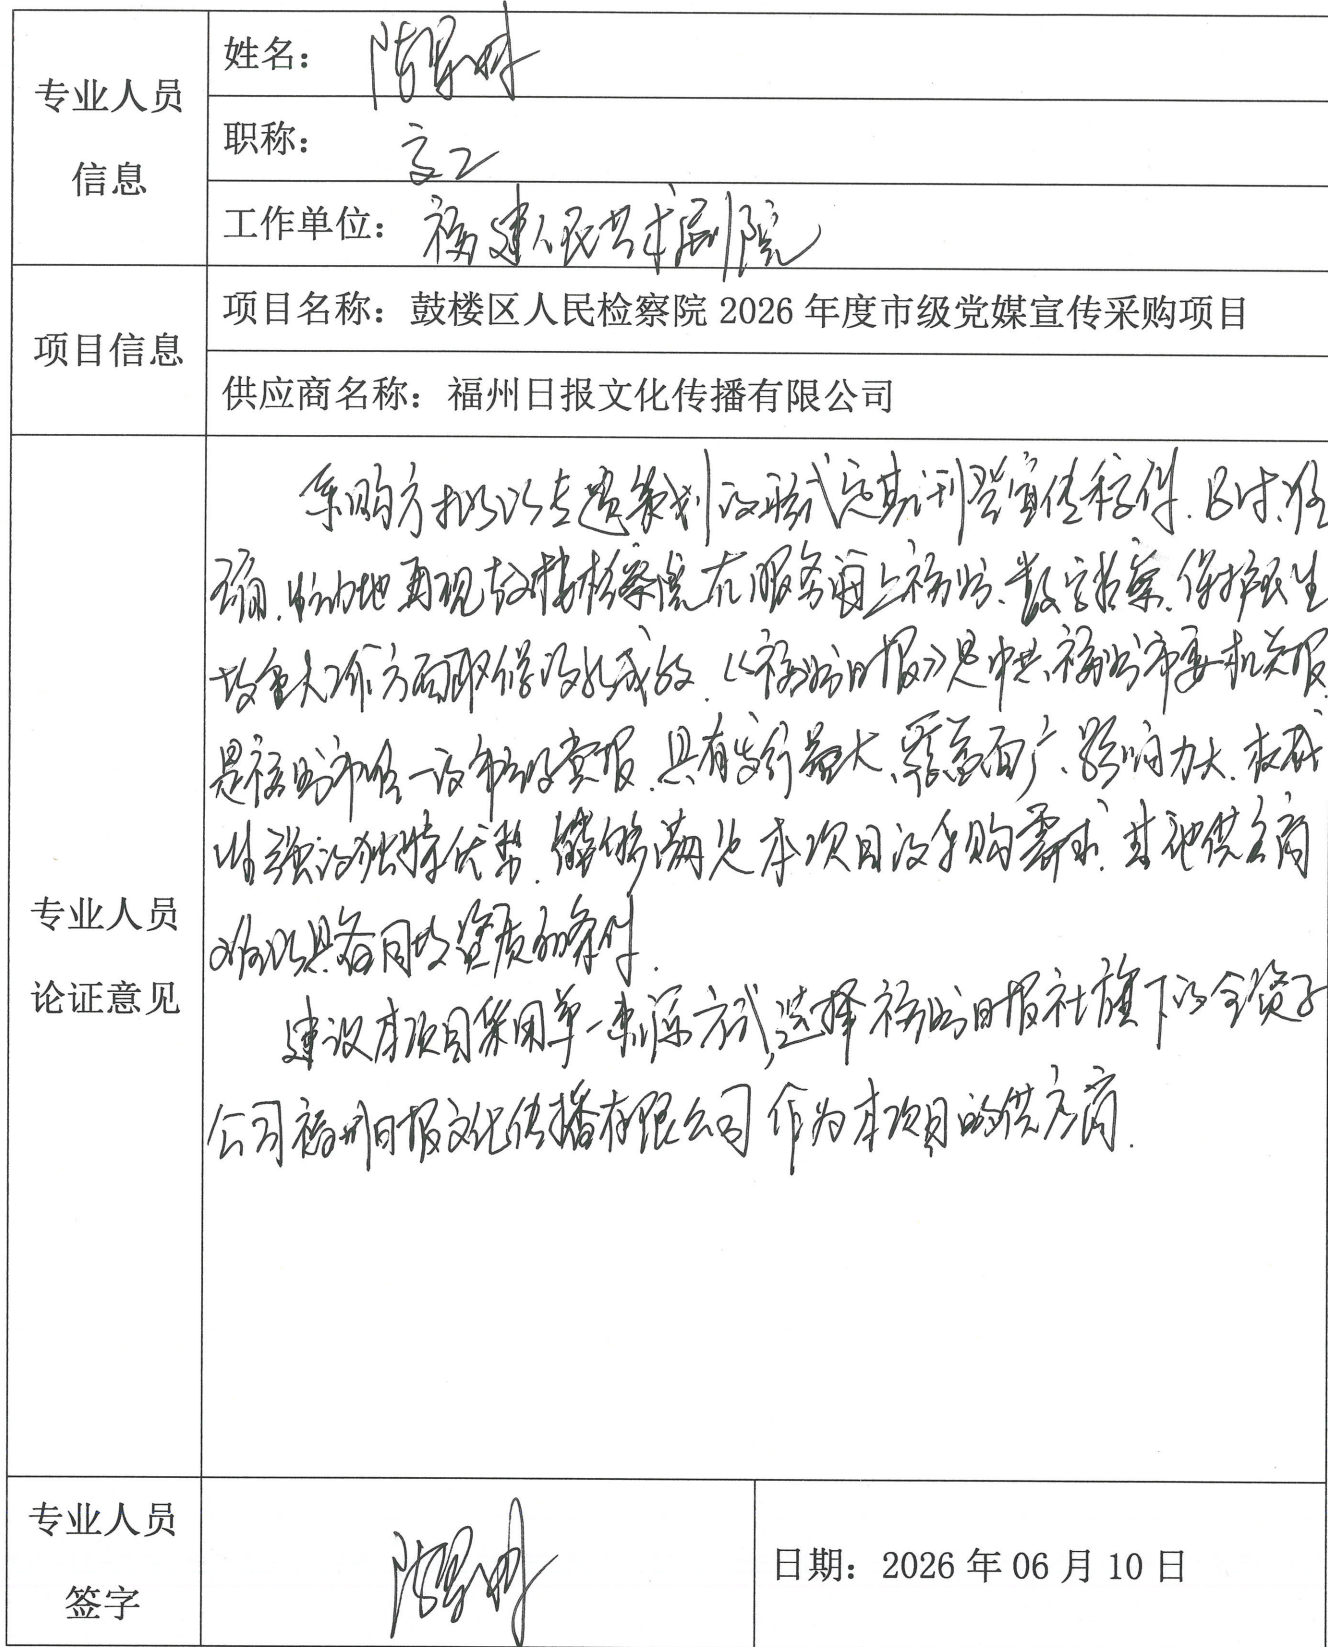 专业人员
信息
姓名:
职称: 高工
工作单位: 福建人民艺术剧院
项目信息
项目名称: 鼓楼区人民检察院 2026 年度市级党媒宣传采购项目
供应商名称: 福州日报文化传播有限公司
专业人员
论证意见
采购方拟以专题策划的形式定期刊登宣传稿件、及时、准
确、生动地再现鼓楼检察院在服务海上福州、数字检察、保护民生
等重大工作方面取得的成效.《福州日报》是中共福州市委机关报,
是福州市唯一的市级党报.具有发行量大、覆盖面广、影响力大、权威
性强的独特优势.能够满足本项目的采购需求.其他供应商
难以具备同等资质和条件.
建议本项目采用单一来源方式,选择福州日报社旗下的全资子
公司福州日报文化传播有限公司作为本项目的供应商.
专业人员
签字
日期: 2026 年 06 月 10 日